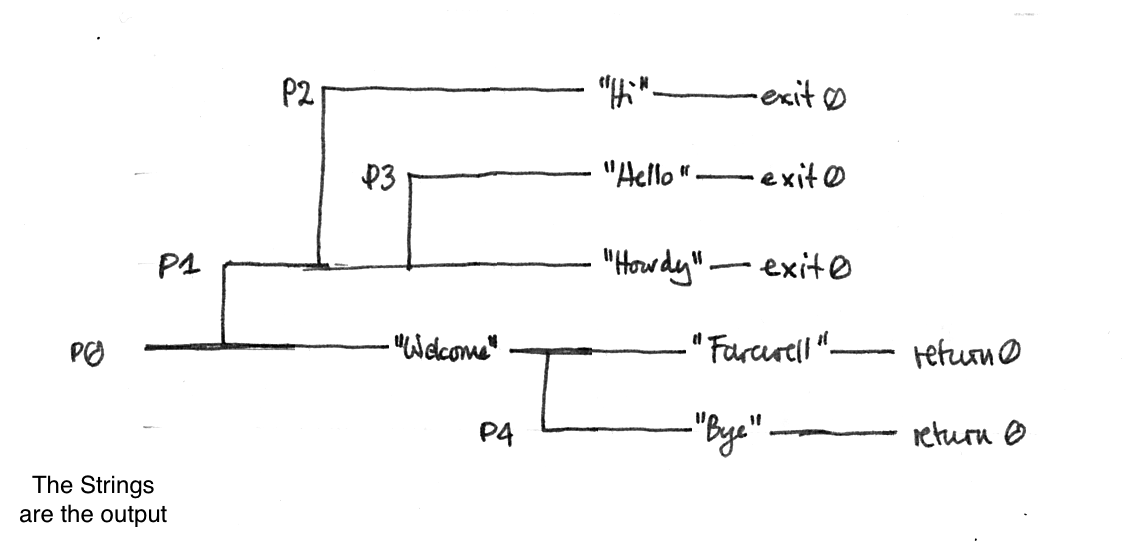 P2 "Hi" exit 0
P3 "Hello" exit 0
P1 "Howdy" exit 0
P0 "Welcome" "Farewell" return 0
P4 "Bye" return 0
The Strings
are the output